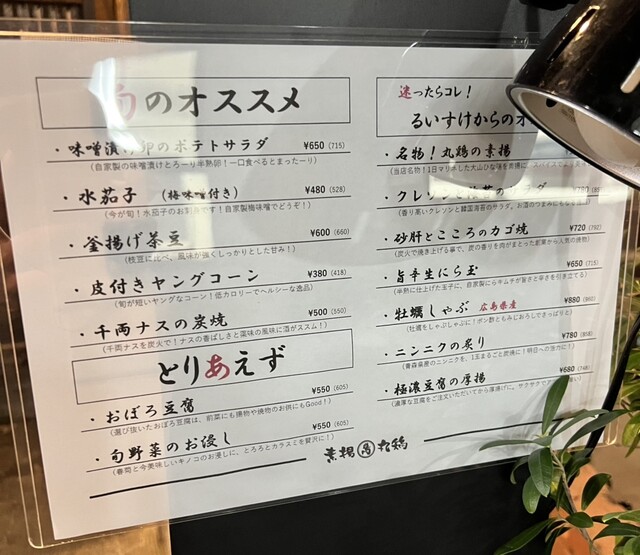 旬のオススメ
・味噌漬け卵のポテトサラダ ¥650 (715)
(自家製の味噌漬けとろーり半熟卵!一口食べるとまったーり)
・水茄子 (梅味噌付き) ¥480 (528)
(今が旬!水茄子のお刺身です!自家製梅味噌でどうぞ!)
・釜揚げ茶豆 ¥600 (660)
(枝豆に比べ、風味が強くしっかりとした甘み!)
・皮付きヤングコーン ¥380 (418)
(旬が短いヤングなコーン!低カロリーでヘルシーな逸品)
・千両ナスの炭焼 ¥500 (550)
(千両ナスを炭火で!ナスの香ばしさと薬味の風味に酒がススム!)
とりあえず
・おぼろ豆腐 ¥550 (605)
(選び抜いたおぼろ豆腐は、前菜にも揚物や焼物のお供にもGood!)
・旬野菜のお浸し ¥550 (605)
(春菊と今美味しいキノコのお浸しに、とろろとカラスミを贅沢に!)
迷ったらコレ!
るいすけからのオ
・名物!丸鶏の素揚
(当店名物!1日マリネした大山ひな鶏を素揚に!スパイスで
・クレソンと
(香り高いクレソンと韓国海苔のサラダ。お酒のつまみにも
・砂肝とこころのカゴ焼 ¥720 (792)
(炭火で焼き上げる事で、炭の香りを肉がまとった創業から人気の焼物)
・旨辛生にら玉 ¥650 (715)
(半熟に仕上げた玉子に、自家製にらキムチが旨さと辛さを引き立てる)
・牡蠣しゃぶ 広島県産 ¥880 (968)
(牡蠣をしゃぶしゃぶに!ポン酢ともみじおろしでさっぱりと)
・ニンニクの炙り ¥780 (858)
(青森県産のニンニクを、1玉まるごと炭焼に!明日への活力に!!)
・極濃豆腐の厚揚 ¥680 (748)
(濃厚な豆腐をご注文いただいてから厚揚げに。サクサクで
素揚 丸鶏